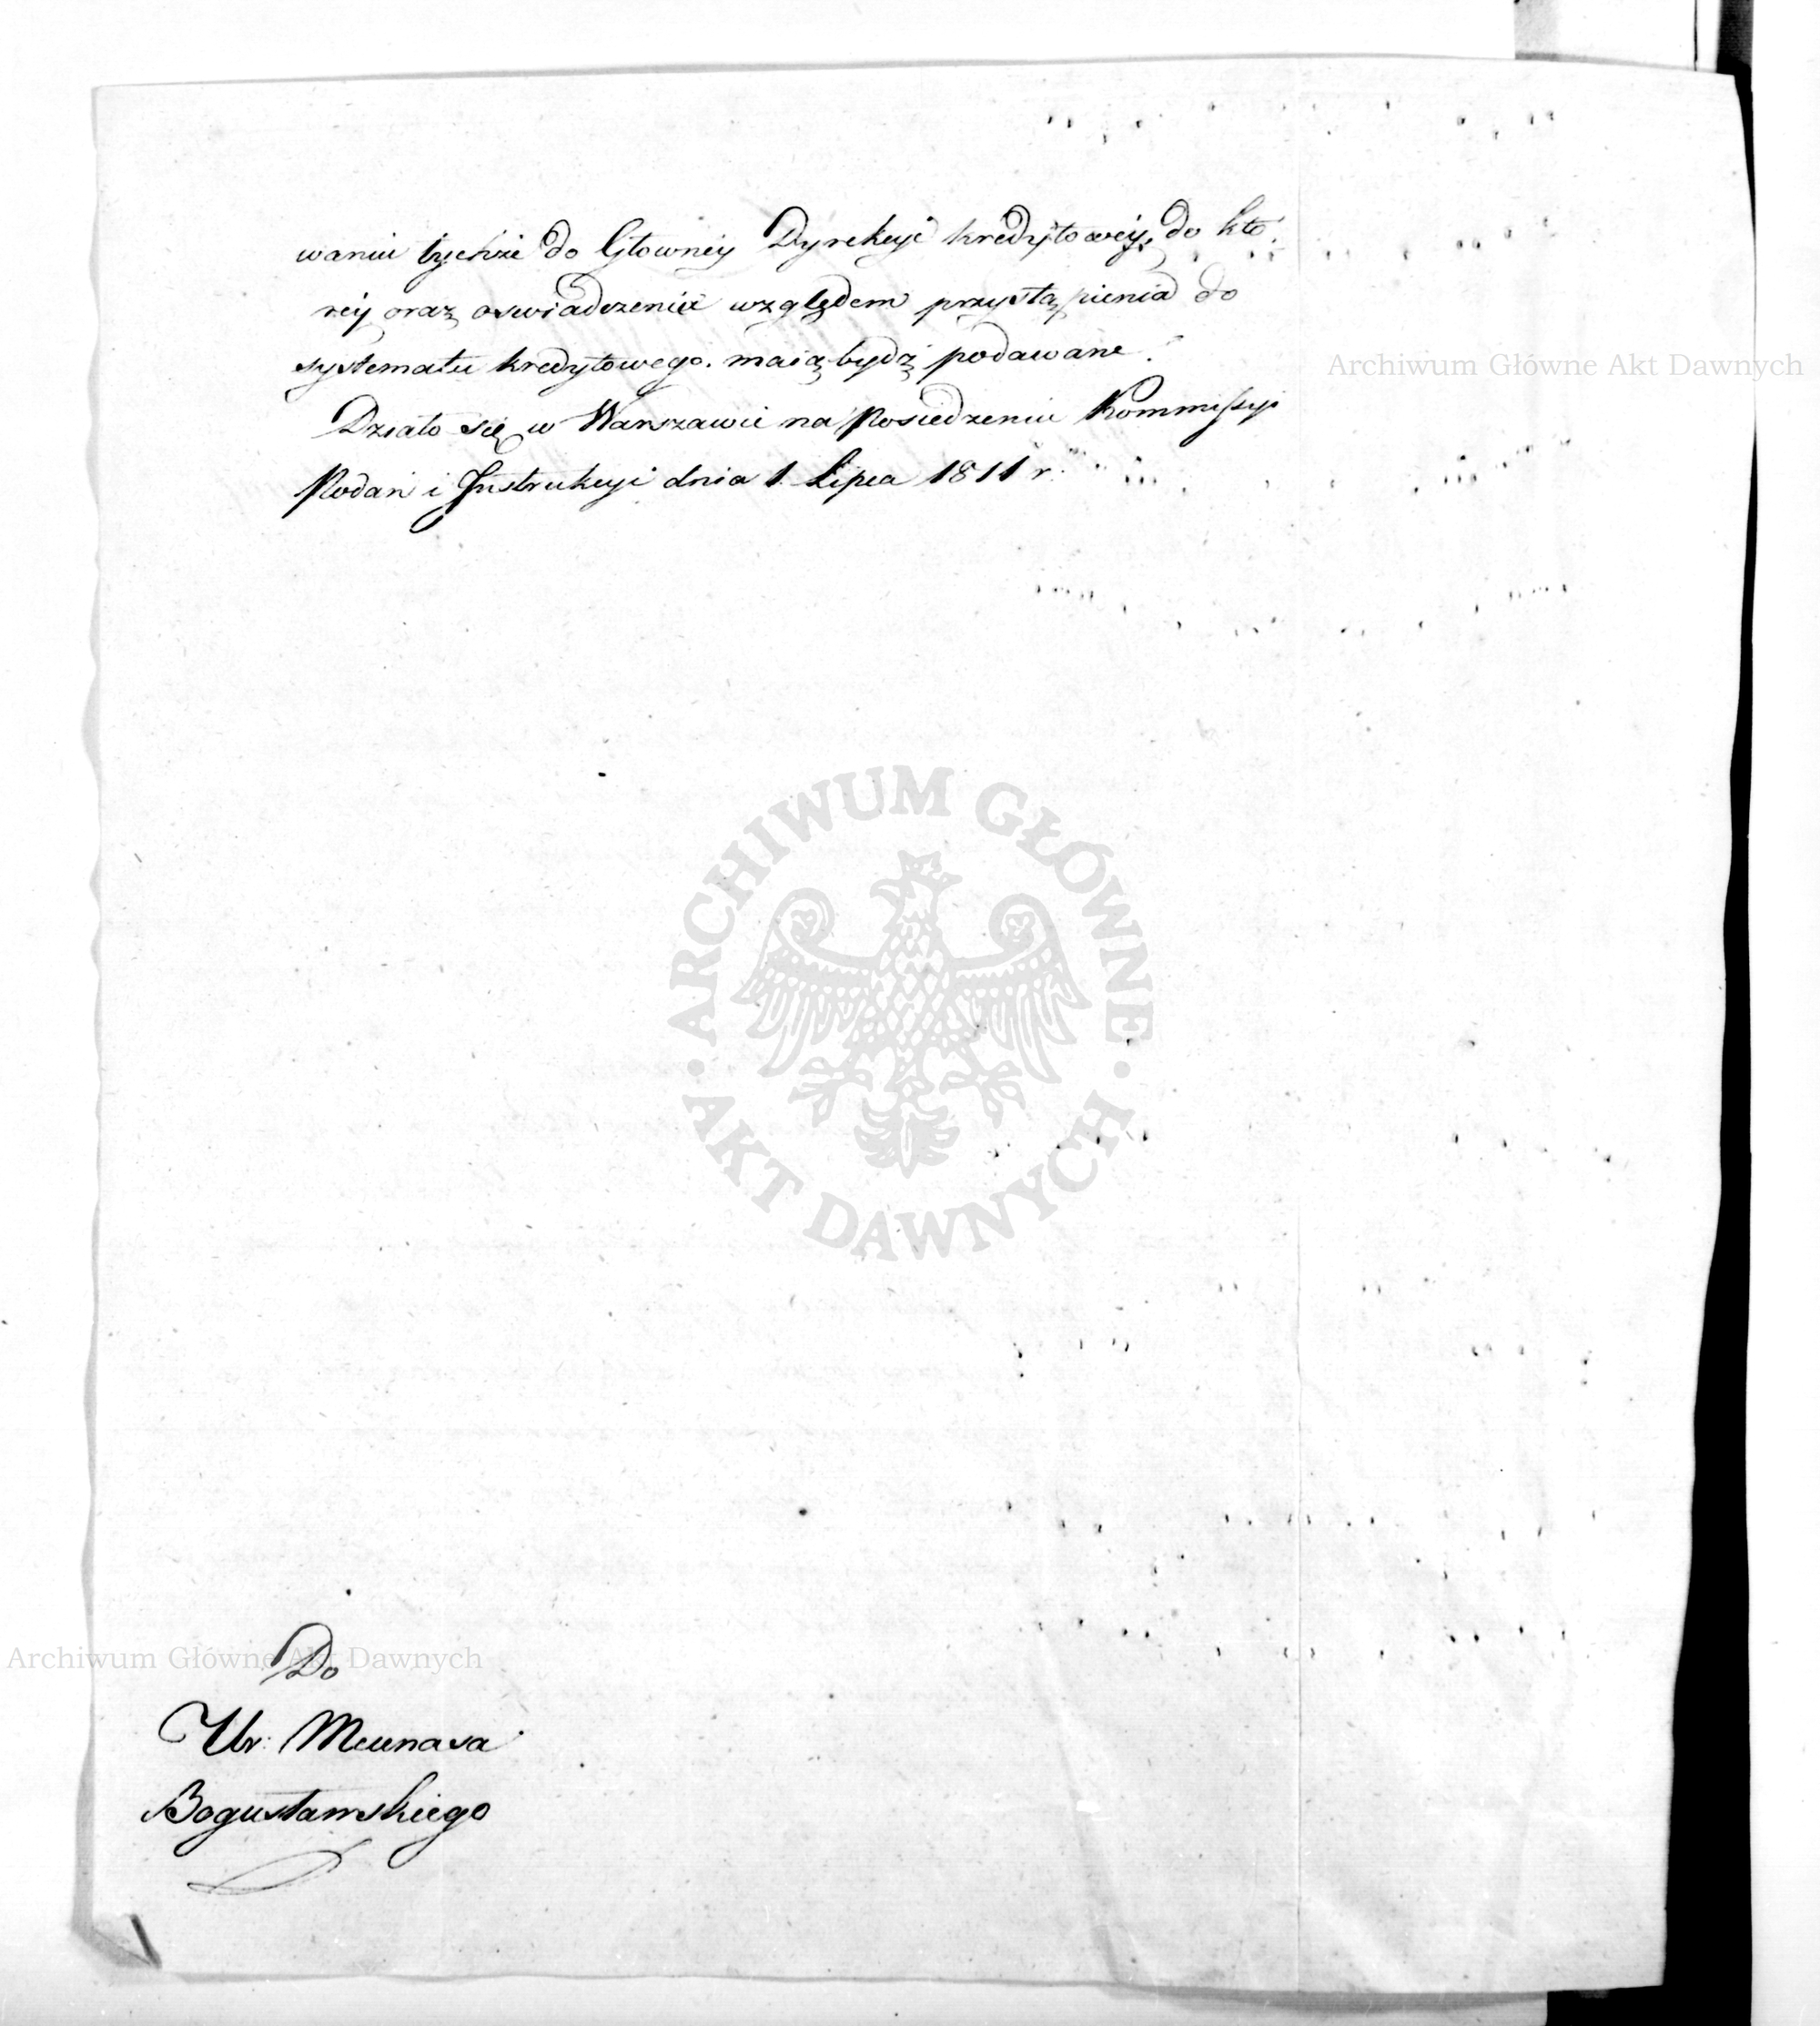 waniu tychże do Głowney Dyrekcyi kredytowey, do któ-
rey oraz oswiadczenia względem przystąpienia do
systematu kredytowego. maią bydź podawane.
Działo się w Warszawie na Posiedzeniu Kommissyi
Podań i Instrukcyi dnia 1. Lipca 1811 r.
Archiwum Główne Akt Dawnych
ARCHIWUM GŁÓWNE
AKT DAWNYCH
Archiwum Główne Akt Dawnych
Do
Ur:
Bogusławskiego